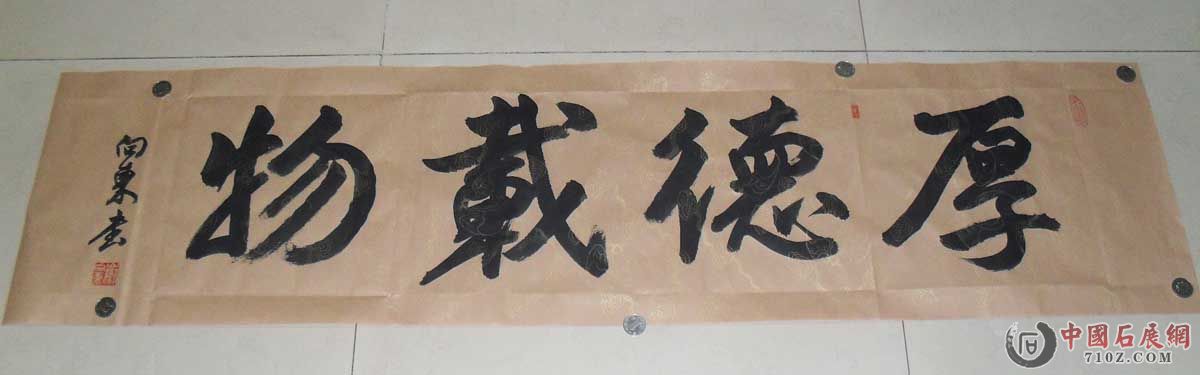 厚德載物
向東書
中國石展網
710Z.COM